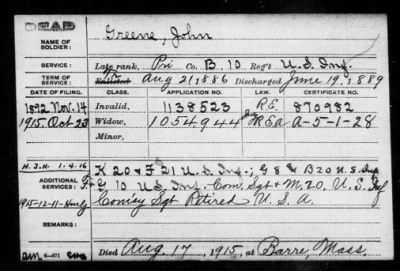 DEAD
NAME OF SOLDIER: Greene, John
SERVICE: Late rank, Pri Co. B, 10 Reg't U.S. Inf.
TERM OF SERVICE: Enlisted Aug 2, 1886 Discharged June 19, 1889
DATE OF FILING. CLASS. APPLICATION NO. LAW. CERTIFICATE NO.
1892 Nov. 14 Invalid, 1138523 R.E. 870982
1915 Oct 23 Widow, 1054944 A-5-1-28
Minor,
H.J.H. 1-4-16
ADDITIONAL SERVICES: K 20 & F 21 U.S. Inf.; G 8 & B 20 U.S. Inf
G 10 U.S. Inf. Com. Sgt & M. 20, U.S. Inf
1915-12-11 Comisy Sgt Retired U.S.A.
REMARKS:
Died Aug. 17, 1915, at Barre, Mass.